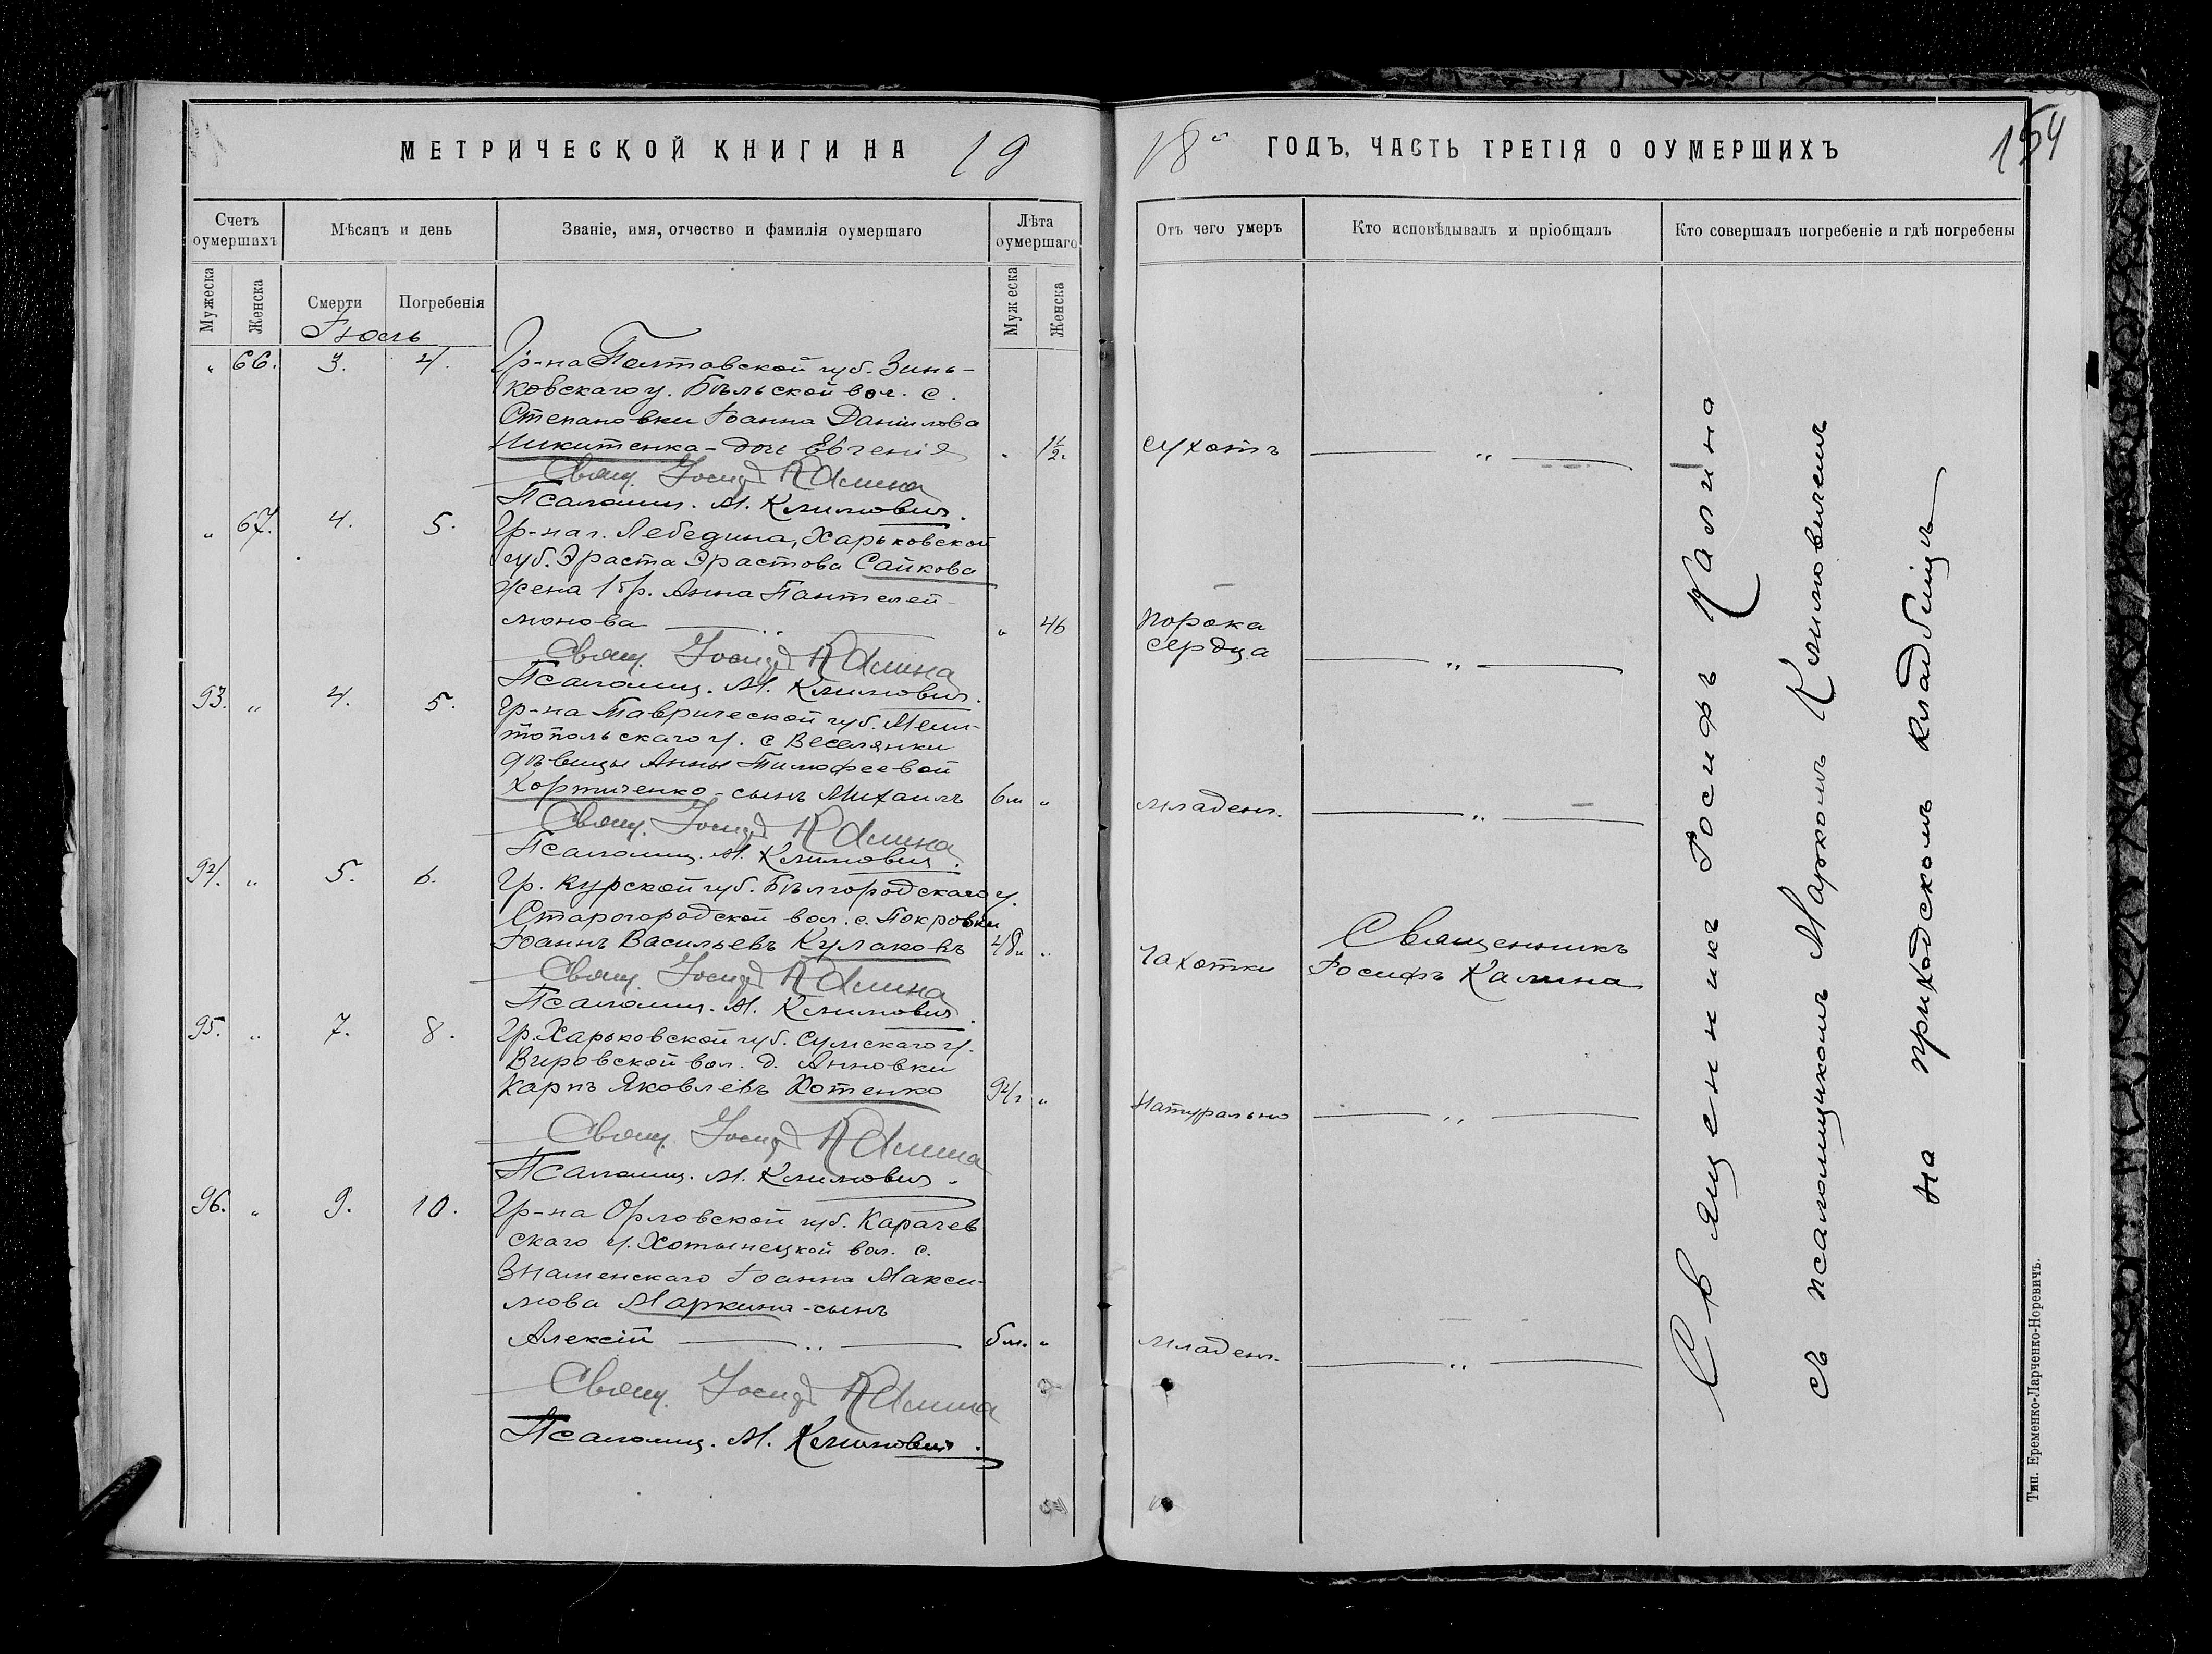 МЕТРИЧЕСКОЙ КНИГИ НА 19
Счетъ оумершихъ
Мѣсяцъ и день
Званіе, имя, отчество и фамилія оумершаго
Лѣта оумершаго
Мужеска
Женска
Смерти
Погребенія
Муж еска
Женска
Іюль
" 66. 3. 4. Гр-на Полтавской губ. Зинь-
ковскаго у. Бѣльской вол. с.
Степановки Іоанна Даніилова
Никитенка - дочь Евгенія " 1½.
Свящ. Іосиф Калина
Псаломщ. М. Климович.
" 67. 4. 5. Гр-на г. Лебедина, Харьковской
губ. Эраста Эрастова Сайкова
жена 1 бр. Анна Пантелей-
монова " 46
Свящ. Іосиф Калина
Псаломщ. М. Климович.
93. " 4. 5. Гр-на Таврической губ. Мели-
топольскаго у. с Веселянки
дѣвицы Анны Тимофеевой
Хортиченко - сынъ Михаилъ 6м "
Свящ. Іосиф Калина
Псаломщ. М. Климович.
94. " 5. 6. Гр. Курской губ. Бѣлгородскаго у.
Старогородской вол. с. Покровки
Іоаннъ Васильевъ Кулаковъ "
Свящ. Іосиф Калина
Псаломщ. М. Климович.
95. " 7. 8. Гр. Харьковской губ. Сумскаго у.
Вировской вол. д. Анновки
Карпъ Яковлевъ Хотенко 94г "
Свящ. Іосиф Калина
Псаломщ. М. Климович.
96. " 9. 10. Гр-на Орловской губ. Карачев
скаго у. Хотынецкой вол. с.
Знаменскаго Іоанна Макси-
мова Маркина - сынъ
Алексій 5м. "
Свящ. Іосиф Калина
Псаломщ. М. Климович.
18 й ГОДЪ, ЧАСТЬ ТРЕТІЯ О ОУМЕРШИХЪ
154
Отъ чего умеръ
Кто исповѣдывалъ и пріобщалъ
Кто совершалъ погребеніе и гдѣ погребены
сухотъ "
порока
сердца "
младен. "
чахотки Священникъ
Іосифъ Калина
натурально "
младен. "
Священникъ Іосифъ Калина
съ псаломщикомъ Маркомъ Климовичемъ
на приходскомъ кладбищѣ
Тип. Еременко-Ларченко-Норевичъ.